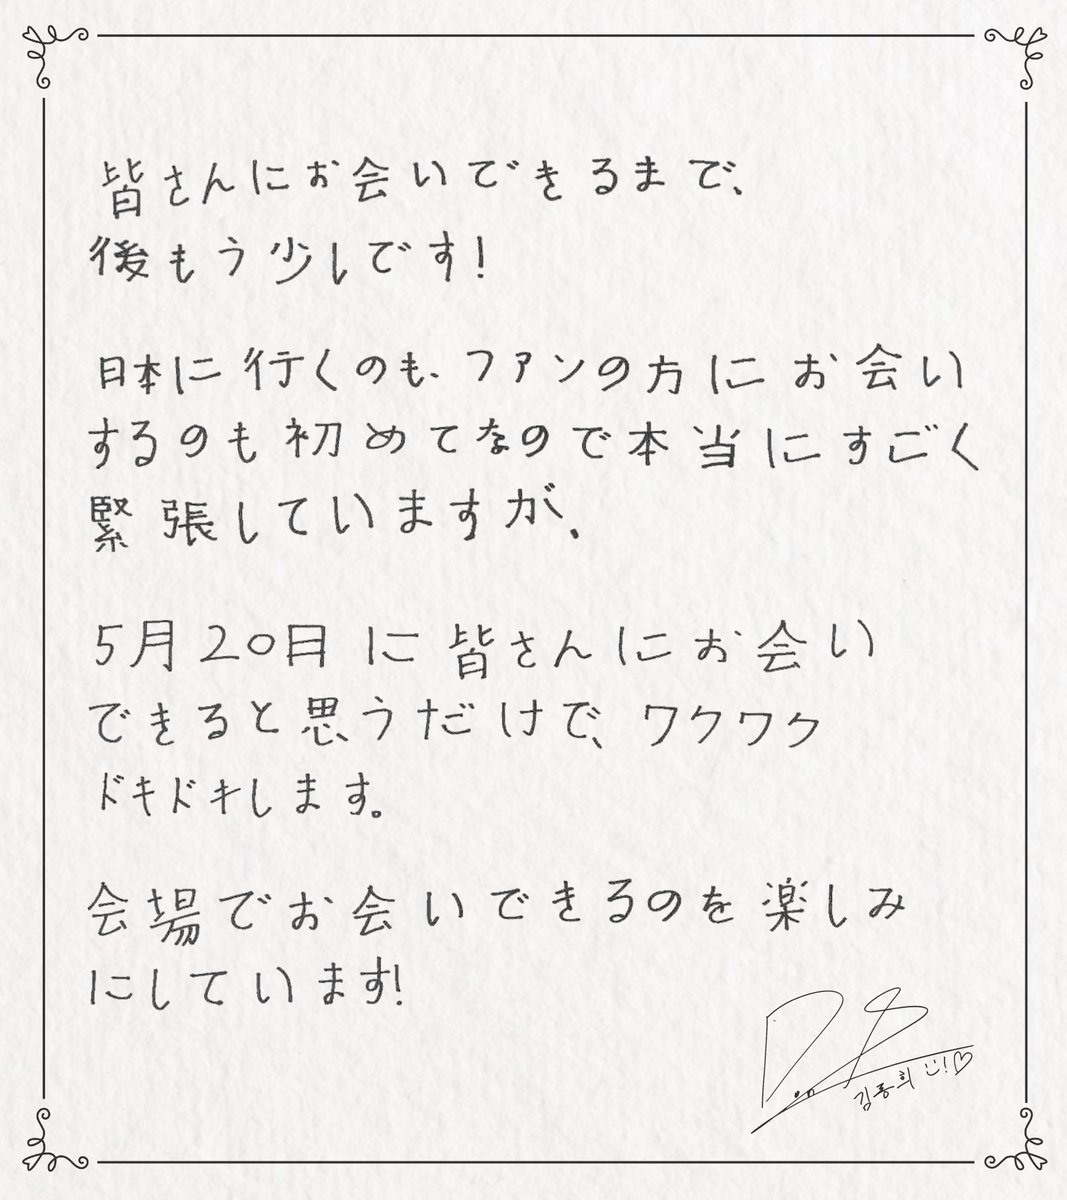 皆さんにお会いできるまで、
後もう少しです!
日本に行くのも、ファンの方にお会い
するのも初めてなので本当にすごく
緊張していますが、
5月20日に皆さんにお会い
できると思うだけで、ワクワク
ドキドキします。
会場でお会いできるのを楽しみ
にしています!